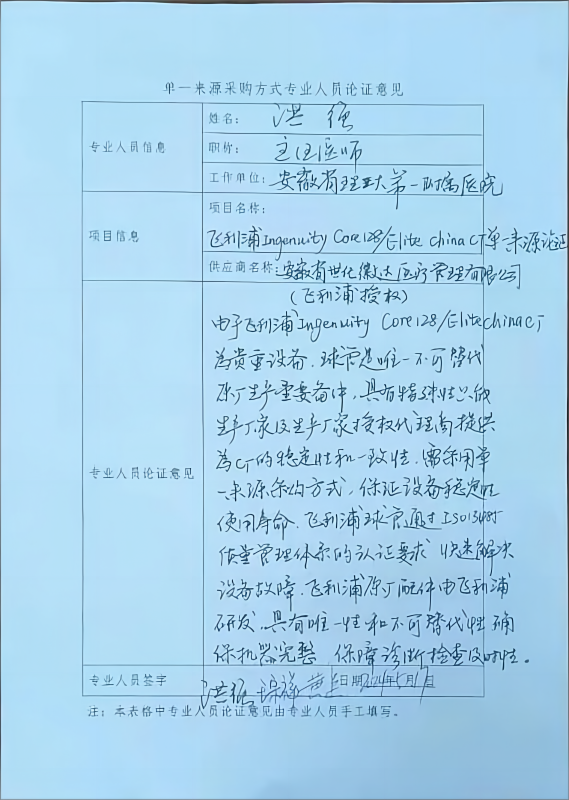 单一来源采购方式专业人员论证意见
专业人员信息
姓名: 洪强
职称: 主任医师
工作单位: 安徽省理工大第一附属医院
项目信息
项目名称:
飞利浦Ingenuity Core128/Elite china CT单一来源论证
供应商名称: 安徽省世化徽达医疗管理有限公司
(飞利浦授权)
专业人员论证意见
由于飞利浦Ingenuity Core128/Elite china CT
为贵重设备. 球管是唯一不可替代
原厂生产重要备件, 具有特殊性只能
生产厂家及生产厂家授权代理商提供
为CT的稳定性和一致性. 需采用单
一来源采购方式, 保证设备稳定性
使用寿命. 飞利浦球管通过ISO13485
质量管理体系的认证要求 快速解决
设备故障. 飞利浦原厂配件由飞利浦
研发. 具有唯一性和不可替代性 确
保机器完整 保障诊断检查及时性。
专业人员签字
洪强
日期2024年5月17日
注: 本表格中专业人员论证意见由专业人员手工填写。